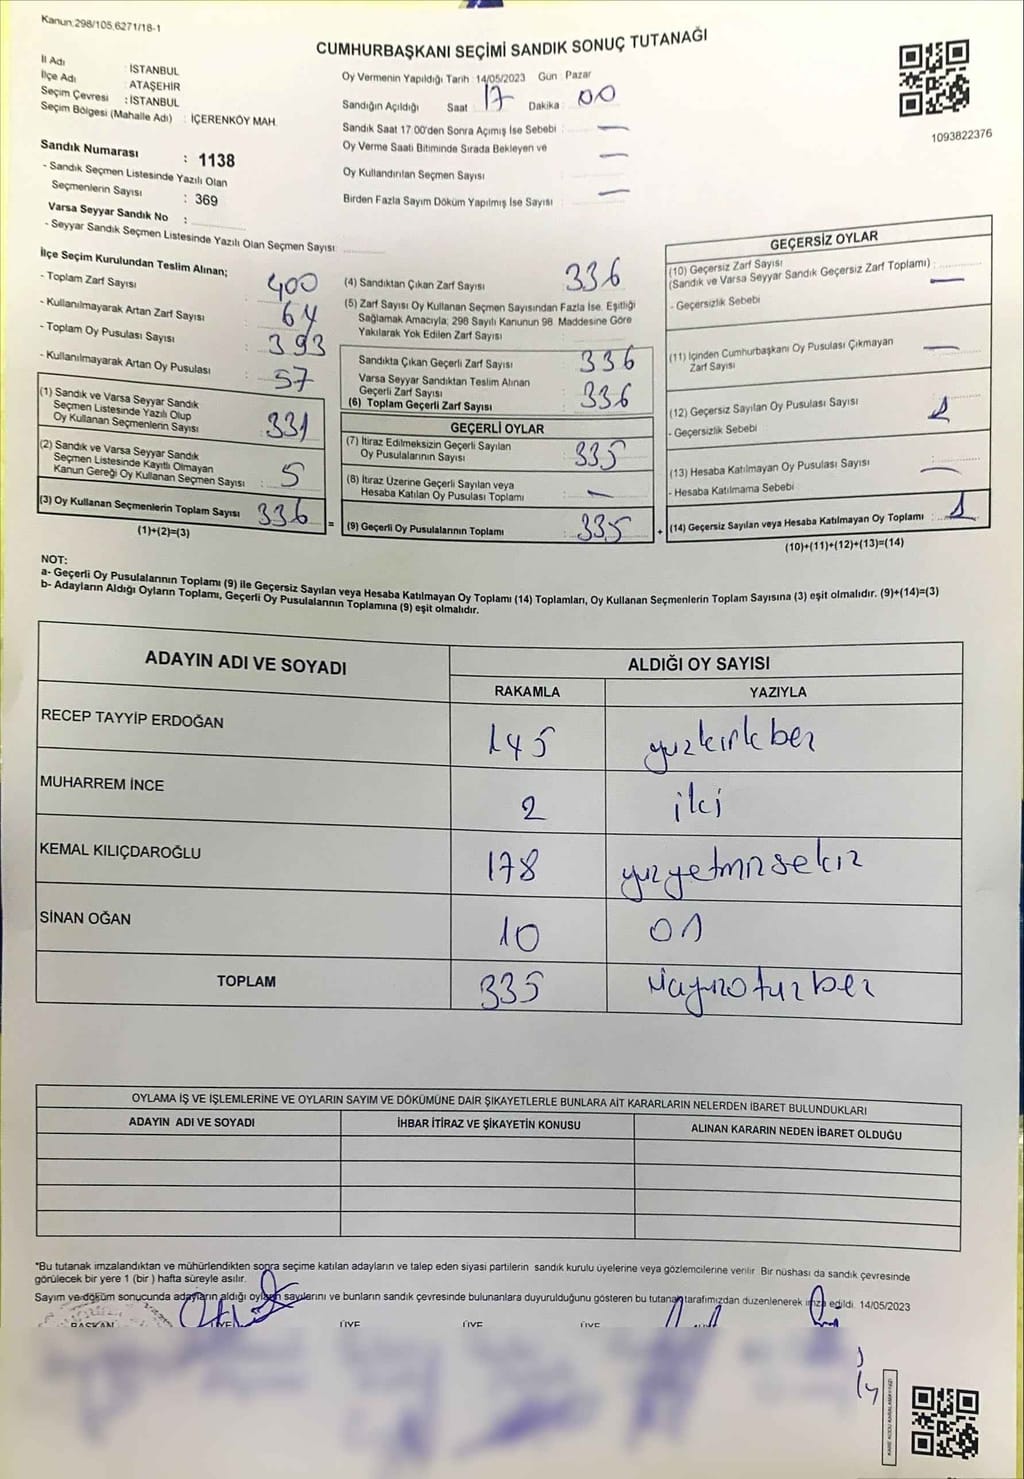 Kanun:298/105,6271/18-1
CUMHURBAŞKANI SEÇİMİ SANDIK SONUÇ TUTANAĞI
İl Adı : İSTANBUL
İlçe Adı : ATAŞEHİR
Seçim Çevresi : İSTANBUL
Seçim Bölgesi (Mahalle Adı) : İÇERENKÖY MAH.
Oy Vermenin Yapıldığı Tarih : 14/05/2023 Gün : Pazar
Sandığın Açıldığı Saat 17 Dakika : 00
Sandık Saat 17:00'den Sonra Açılmış İse Sebebi : —
Oy Verme Saati Bitiminde Sırada Bekleyen ve
Oy Kullandırılan Seçmen Sayısı : —
Birden Fazla Sayım Döküm Yapılmış İse Sayısı : —
1093822376
Sandık Numarası : 1138
- Sandık Seçmen Listesinde Yazılı Olan
Seçmenlerin Sayısı : 369
Varsa Seyyar Sandık No :
- Seyyar Sandık Seçmen Listesinde Yazılı Olan Seçmen Sayısı:
İlçe Seçim Kurulundan Teslim Alınan;
- Toplam Zarf Sayısı : 400
- Kullanılmayarak Artan Zarf Sayısı : 64
- Toplam Oy Pusulası Sayısı : 393
- Kullanılmayarak Artan Oy Pusulası : 57
(1) Sandık ve Varsa Seyyar Sandık
Seçmen Listesinde Yazılı Olup
Oy Kullanan Seçmenlerin Sayısı : 331
(2) Sandık ve Varsa Seyyar Sandık
Seçmen Listesinde Kayıtlı Olmayan
Kanun Gereği Oy Kullanan Seçmen Sayısı : 5
(3) Oy Kullanan Seçmenlerin Toplam Sayısı : 336
(1)+(2)=(3)
=
(4) Sandıktan Çıkan Zarf Sayısı : 336
(5) Zarf Sayısı Oy Kullanan Seçmen Sayısından Fazla İse, Eşitliği
Sağlamak Amacıyla; 298 Sayılı Kanunun 98. Maddesine Göre
Yakılarak Yok Edilen Zarf Sayısı :
Sandıkta Çıkan Geçerli Zarf Sayısı : 336
Varsa Seyyar Sandıktan Teslim Alınan
Geçerli Zarf Sayısı
(6) Toplam Geçerli Zarf Sayısı : 336
GEÇERLİ OYLAR
(7) İtiraz Edilmeksizin Geçerli Sayılan
Oy Pusulalarının Sayısı : 335
(8) İtiraz Üzerine Geçerli Sayılan veya
Hesaba Katılan Oy Pusulası Toplamı : —
(9) Geçerli Oy Pusulalarının Toplamı : 335
+
GEÇERSİZ OYLAR
(10) Geçersiz Zarf Sayısı
(Sandık ve Varsa Seyyar Sandık Geçersiz Zarf Toplamı) : —
- Geçersizlik Sebebi
(11) İçinden Cumhurbaşkanı Oy Pusulası Çıkmayan
Zarf Sayısı —
(12) Geçersiz Sayılan Oy Pusulası Sayısı : 1
- Geçersizlik Sebebi
(13) Hesaba Katılmayan Oy Pusulası Sayısı : —
- Hesaba Katılmama Sebebi
(14) Geçersiz Sayılan veya Hesaba Katılmayan Oy Toplamı : 1
(10)+(11)+(12)+(13)=(14)
NOT:
a- Geçerli Oy Pusulalarının Toplamı (9) ile Geçersiz Sayılan veya Hesaba Katılmayan Oy Toplamı (14) Toplamları, Oy Kullanan Seçmenlerin Toplam Sayısına (3) eşit olmalıdır. (9)+(14)=(3)
b- Adayların Aldığı Oyların Toplamı, Geçerli Oy Pusulalarının Toplamına (9) eşit olmalıdır.
ADAYIN ADI VE SOYADI ALDIĞI OY SAYISI
RAKAMLA YAZIYLA
RECEP TAYYİP ERDOĞAN 145 yüzkırkbeş
MUHARREM İNCE 2 iki
KEMAL KILIÇDAROĞLU 178 yüzyetmişsekiz
SİNAN OĞAN 10 on
TOPLAM 335 üçyüzotuzbeş
OYLAMA İŞ VE İŞLEMLERİNE VE OYLARIN SAYIM VE DÖKÜMÜNE DAİR ŞİKAYETLERLE BUNLARA AİT KARARLARIN NELERDEN İBARET BULUNDUKLARI
ADAYIN ADI VE SOYADI İHBAR İTİRAZ VE ŞİKAYETİN KONUSU ALINAN KARARIN NEDEN İBARET OLDUĞU
*Bu tutanak imzalandıktan ve mühürlendikten sonra seçime katılan adayların ve talep eden siyasi partilerin sandık kurulu üyelerine veya gözlemcilerine verilir. Bir nüshası da sandık çevresinde
görülecek bir yere 1 (bir ) hafta süreyle asılır.
Sayım ve döküm sonucunda adayların aldığı oyların sayılarını ve bunların sandık çevresinde bulunanlara duyurulduğunu gösteren bu tutanak tarafımızdan düzenlenerek imza edildi. 14/05/2023
BAŞKAN ÜYE ÜYE ÜYE ÜYE